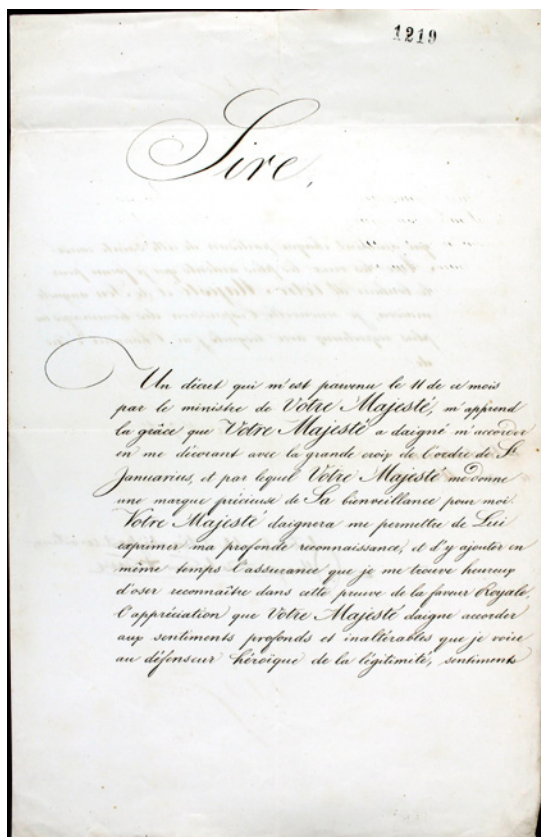 1219
Sire,
Un décret qui m'est parvenu le 11 de ce mois
par le ministre de Votre Majesté, m'apprend
la grâce que Votre Majesté a daigné m'accorder
en me décorant avec la grande croix de l'ordre de St.
Januarius, et par lequel Votre Majesté me donne
une marque précieuse de Sa bienveillance pour moi.
Votre Majesté daignera me permettre de Lui
exprimer ma profonde reconnaissance, et d'y ajouter en
même temps l'assurance que je me trouve heureux
d'oser reconnaître dans cette preuve de la faveur Royale,
l'appréciation que Votre Majesté daigne accorder
aux sentiments profonds et inaltérables que je voue
au défenseur héroïque de la légitimité, sentiments